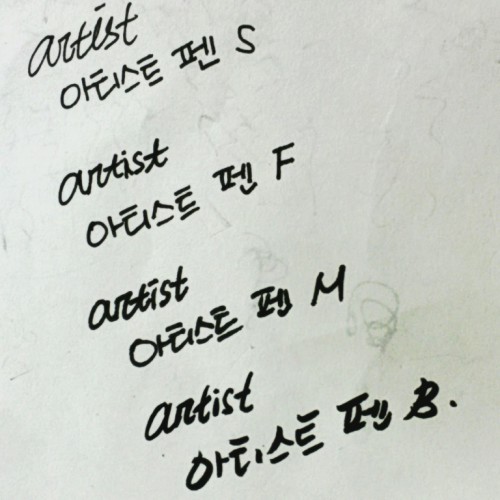 artist
아티스트 펜 S
artist
아티스트 펜 F
artist
아티스트 펜 M
artist
아티스트 펜 B.